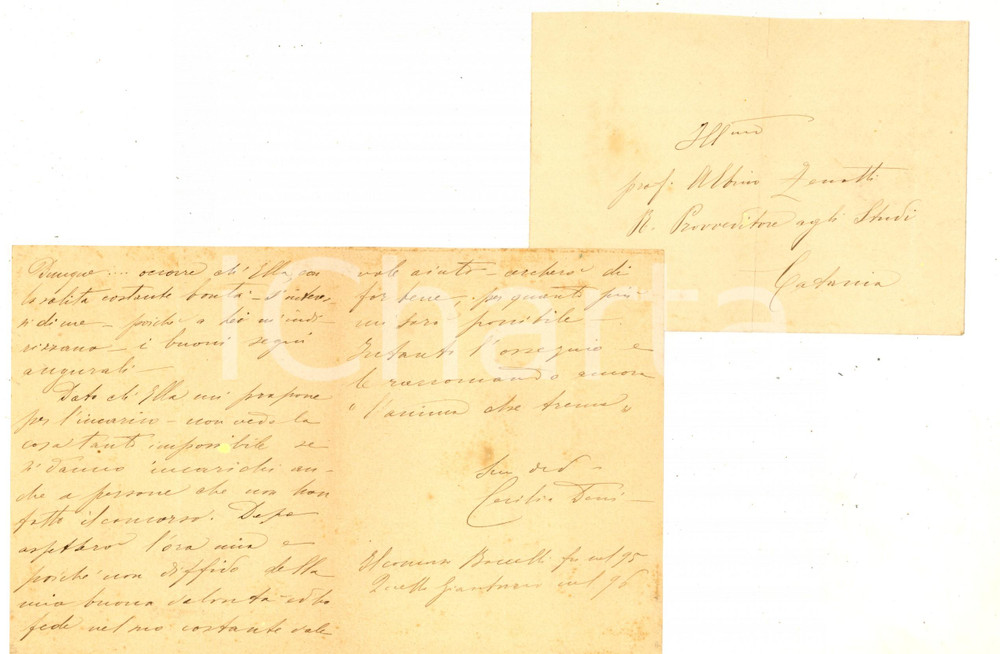 Ill.mo
prof. Albino Zenatti
R. Provveditore agli Studi
Catania
Dunque .... occorre ch' Ella, con
la solita costante bontà - s'interes-
si di me - poiché a Lei m'indi-
rizzano - i buoni segni
augurali -
Dato ch' Ella mi propone
per l'incarico - non vedo la
cosa tanto impossibile se
si danno incarichi an-
che a persone che non han
fatto il concorso. Dopo
aspetterò l'ora mia e
poiché non diffido della
mia buona volontà ed ho
fede nel suo costante vale-
vole aiuto - cercherò di
far bene, per quanto più
mi sarà possibile.
Intanto l'ossequio e
le raccomando ancora
"l'anima che trema"
Suo dev
Cecilio
Il concorso fu nel 95
Quello nel 96
iCharta